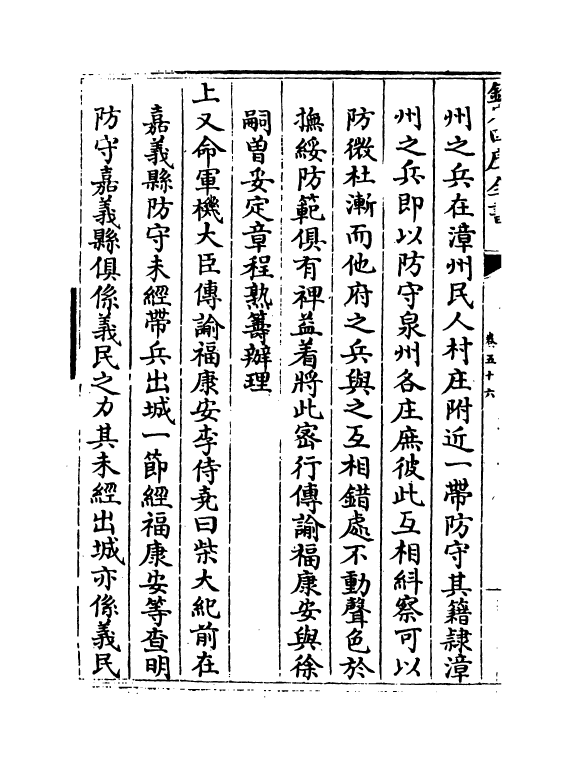 欽定四庫全書
卷五十六
州之兵在漳州民人村庄附近一帶防守其籍隸漳
州之兵即以防守泉州各庄庶彼此互相糾察可以
防微杜漸而他府之兵與之互相錯處不動聲色於
撫綏防範俱有裨益着將此密行傳諭福康安與徐
嗣曾妥定章程熟籌辦理
上又命軍機大臣傳諭福康安李侍堯曰柴大紀前在
嘉義縣防守未經帶兵出城一節經福康安等查明
防守嘉義縣俱係義民之力其未經出城亦係義民